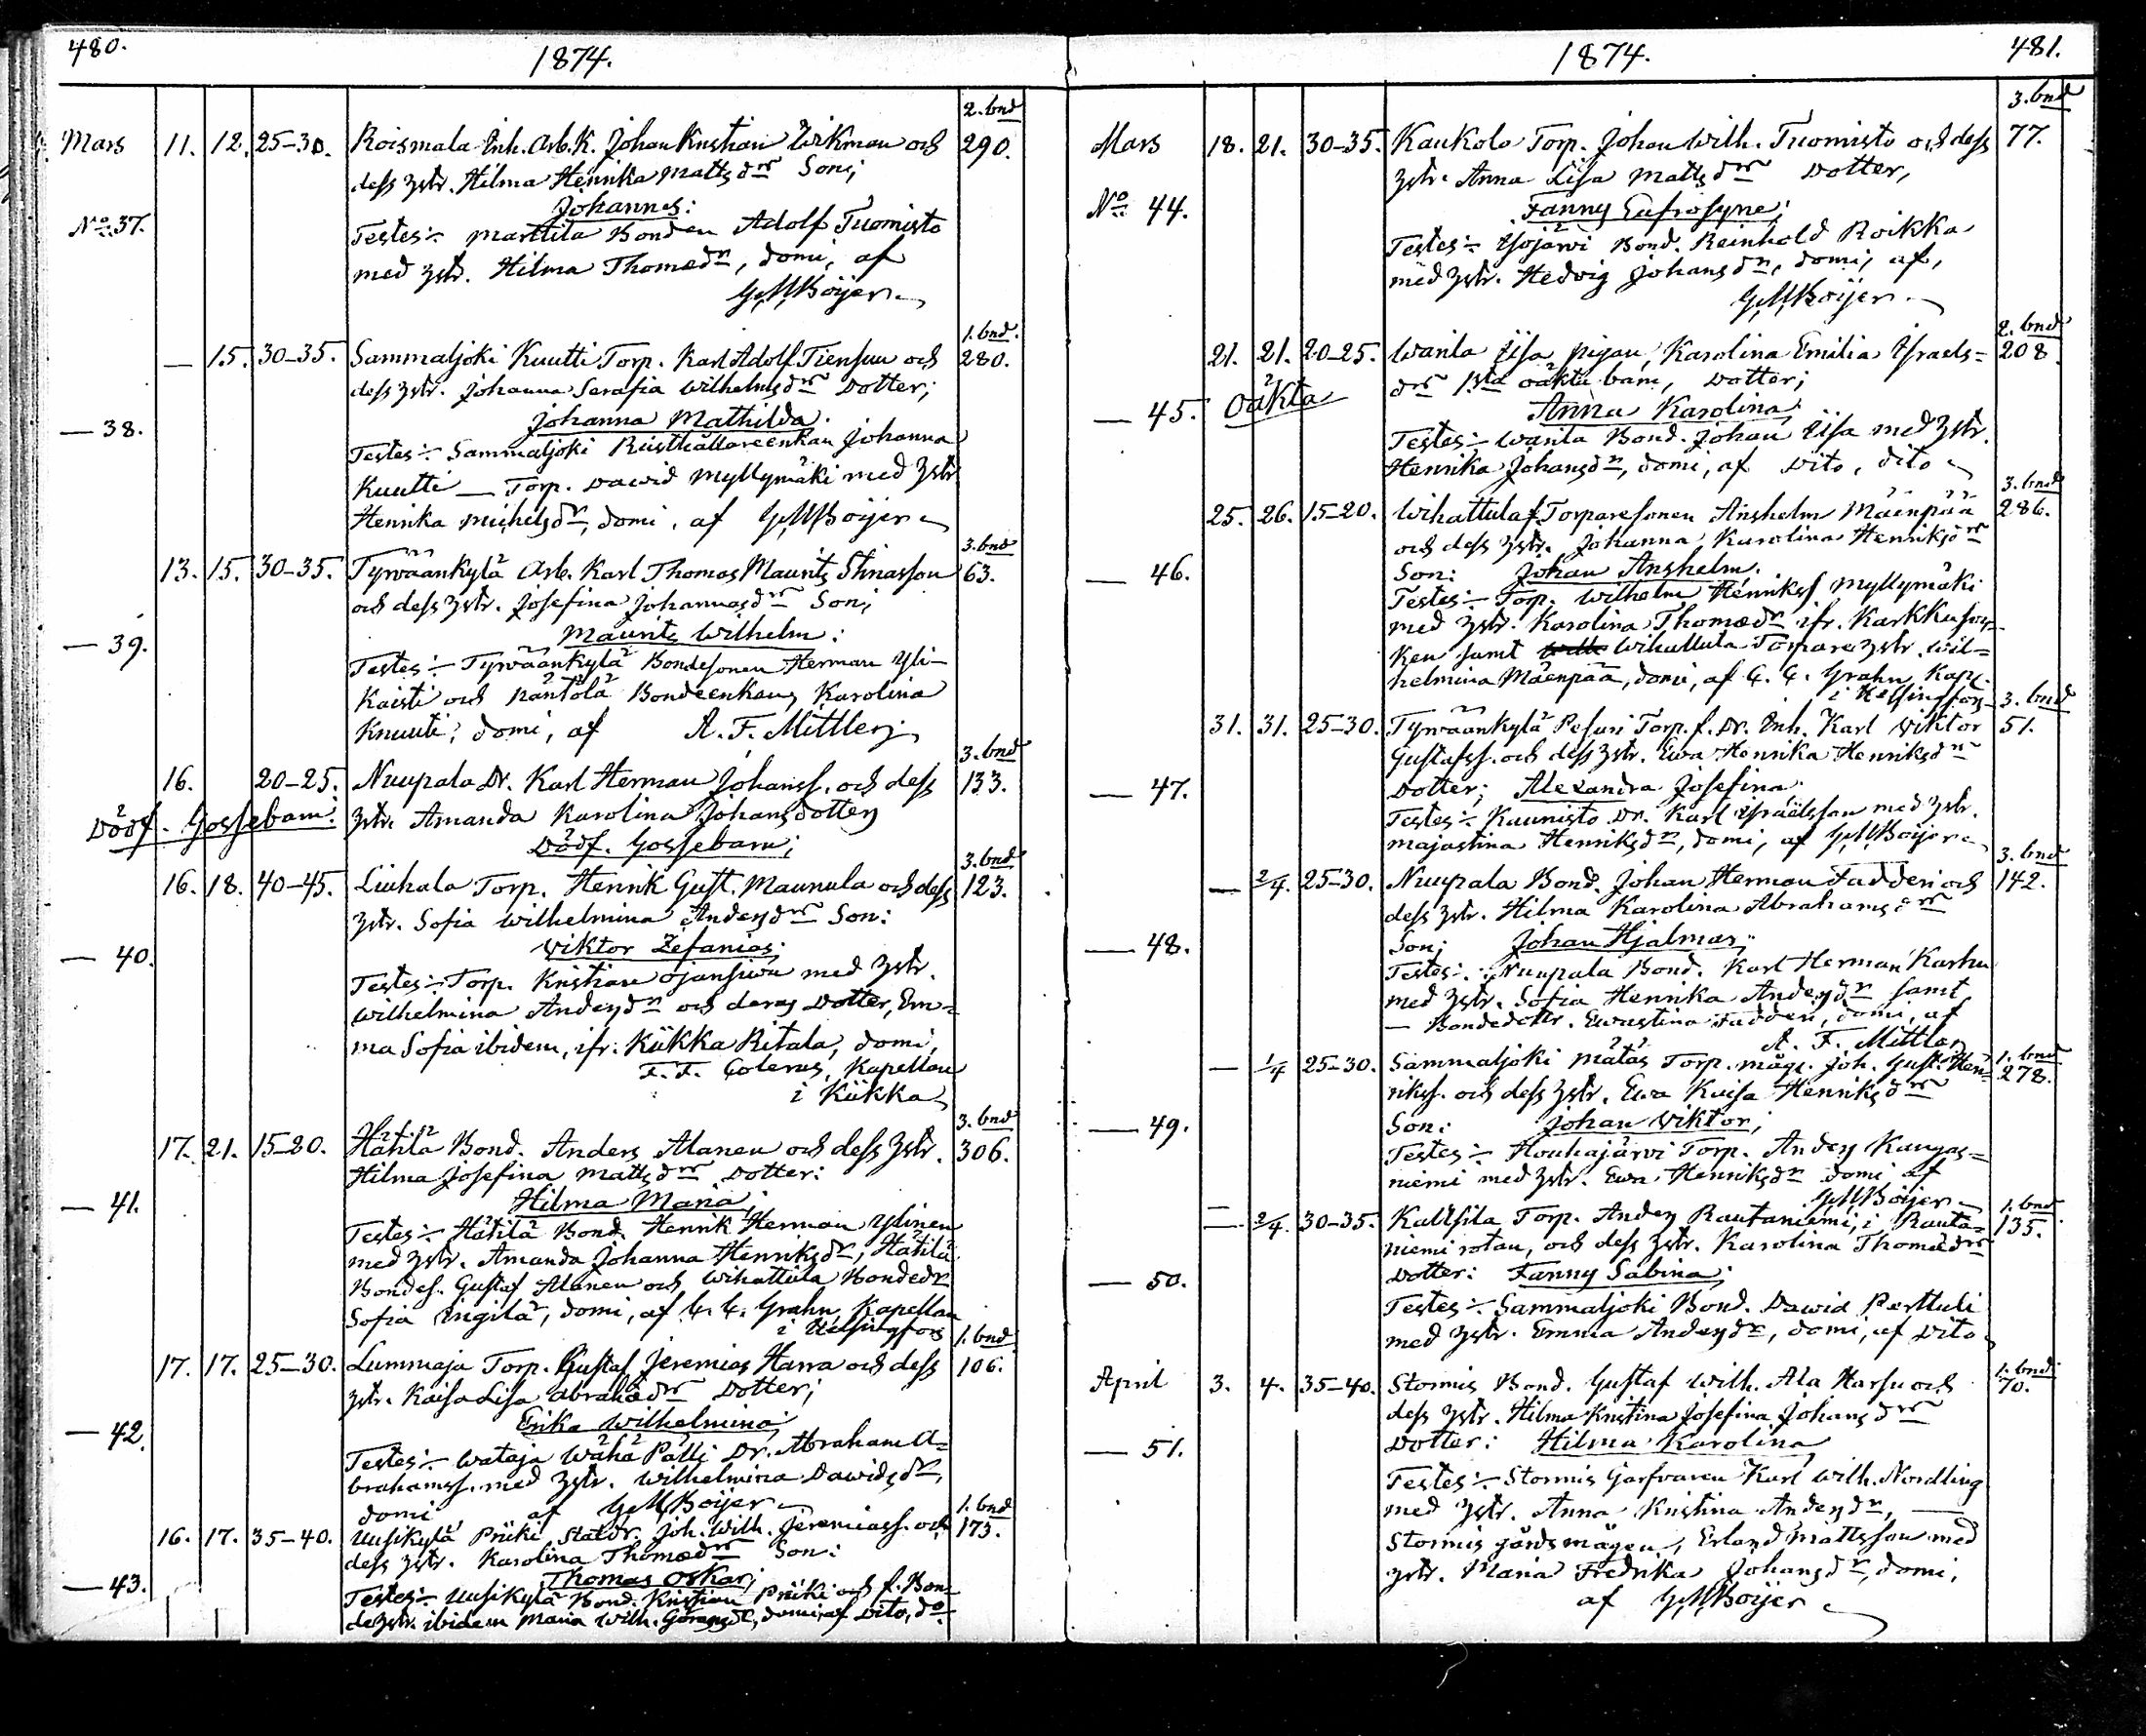 480.
1874.
2. bnd
Mars 11. 12. 25-30. Roismala Inh. Arb. K. Johan Kristian Wikman och 290.
dess hstr. Hilma Henrika Mattsdr Son;
Johannes:
No 37.
Testes:- Marttila Bonden Adolf Tuomisto
med hstr. Hilma Thomædr, domi, af
G M Boijer
1. bnd.
— 15. 30-35. Sammaljoki Kuutti Torp. Karl Adolf Tiensuu och 280.
dess hstr. Johanna Serafia Wilhelmsdr Dotter;
Johanna Mathilda.
— 38.
Testes:- Sammaljoki Rusthållareenkan Johanna
Kuutti — Torp. Dawid Myllymäki med hstr
Henrika Michelsdr, domi, af G M Boijer
3. bnd
13. 15. 30-35. Tyrväänkylä Arb. Karl Thomas Maurits Stinasson 63.
och dess hstr. Josefina Johannesdr Son;
Maurits Wilhelm:
— 39.
Testes:- Tyrväänkylä Bondesonen Herman Yli-
Kaisti och Päntölä Bondeenkan, Karolina
Knuuti, domi, af A. F. Mittler
3. bnd
16. 20-25. Nuupala Dr. Karl Herman Johanss. och dess 133.
Dödf. Gossebarn. hstr. Amanda Karolina Johansdotter
Dödf. Gossebarn;
3. bnd
16. 18. 40-45. Liuhala Torp. Henrik Gust. Maunula och dess 123.
hstr. Sofia Wilhelmina Andersdr Son:
Viktor Zefanias;
— 40.
Testes:- Torp. Kristian Ojansivu med hstr.
Wilhelmina Andersdr och deras Dotter, Em=
ma Sofia ibidem, ifr. Kiikka Ritala, domi,
F. F. Kapellan
i Kiikka
3. bnd
17. 21. 15-20. Hätilä Bond. Anders Alanen och dess hstr. 306.
Hilma Josefina Mattsdr Dotter:
Hilma Maria;
— 41.
Testes:- Hätilä Bond. Henrik Herman Ylinen
med hstr. Amanda Johanna Henriksdr, Hätilä
Bondes. Gustaf Alanen och Wihattula Bondedr
Sofia Ingilä, domi, af Grahn, Kapellan
i Helsingfors
1. bnd
17. 17. 25-30. Lummaja Torp. Gustaf Jeremias Harra och dess 106.
hstr. Kaisa Lisa Abrahadr Dotter;
Erika Wilhelmina;
— 42.
Testes:- Wataja Wähä Pälli Dr. Abraham A=
brahamss. med hstr. Wilhelmina Dawidsdr,
domi, af G M Boijer
1. bnd
16. 17. 35-40. Uusikylä Priiki Staldr. Joh. Wilh. Jeremiass. och 173.
dess hstr. Karolina Thomædr Son:
Thomas Oskar;
— 43.
Testes:- Uusikylä Bond. Kristian Priiki och f. Bon=
dehstr. ibidem Maria Wilh. Göransdr, domi, af Dito, do
1874.
481.
3. bnd
Mars 18. 21. 30-35. Kaukola Torp. Johan Wilh. Tuomisto och dess 77.
hstr. Anna Lisa Mattsdr Dotter,
No 44.
Fanny Eufrosyne;
Testes:- Yojärvi Bond. Reinhold Roikka
med hstr. Hedvig Johansdr, domi, af,
G M Boijer
2. bnd
21. 21. 20-25. Wanla Iisa pigan, Karolina Emilia Israels= 208.
dr 1sta oäkta barn, Dotter;
— 45. Oäkta
Anna Karolina;
Testes:- Wanla Bond. Johan Iisa med hstr.
Henrika Johansdr, domi, af Dito, dito
3. bnd
25. 26. 15-20. Wihattula f. Torparesonen Anshelm Mäenpää 286.
och dess hstr. Johanna Karolina Henriksdr
— 46.
Son: Johan Anshelm.
Testes:- Torp. Wilhelm Henrikss Myllymäki
med hstr. Karolina Thomædr ifr. Karkku soc=
ken samt Wihattula Torparehstr. Wil=
helmina Mäenpää, domi, af Grahn Kapl.
i Helsingfors
3. bnd
31. 31. 25-30. Tyrväänkylä Pesuri Torp. f. Dr. Inh. Karl Viktor 51.
Gustafss. och dess hstr. Ewa Henrika Henriksdr
— 47.
Dotter; Alexandra Josefina.
Testes:- Kaunisto Dr. Karl Israelsson med hstr.
Majastina Henriksdr, domi, af G M Boijer
3. bnd
— 2/4. 25-30. Nuupala Bond. Johan Herman Fadderi och 142.
dess hstr. Hilma Karolina Abrahamsdr
— 48.
Son; Johan Hjalmar;
Testes:- Nuupala Bond. Karl Herman Karhu
med hstr. Sofia Henrika Andersdr samt
— Bondedottr. Ewastina Fadderi, domi, af
A. F. Mittler
1. bnd
— 1/4 25-30. Sammaljoki Mätäs Torp. mågen Joh. Gust. Hen= 278.
rikss. och dess hstr. Ewa Kaisa Henriksdr
— 49.
Son: Johan Viktor;
Testes:- Houhajärvi Torp. Anders Kangas=
niemi med hstr. Ewa Henriksdr domi, af
G M Boijer
1. bnd
— 2/4. 30-35. Kallisila Torp. Anders Rautaniemi, i Rauta= 135.
niemi rotan, och dess hstr. Karolina Thomædr
— 50.
Dotter: Fanny Sabina;
Testes:- Sammaljoki Bond. Dawid Perttuli
med hstr. Emma Andersdr, domi, af Dito
1. bnd
April 3. 4. 35-40. Stormis Bond. Gustaf Wilh. Ala Harsu och 70.
dess hstr. Hilma Kristina Josefina Johansdr
— 51.
Dotter: Hilma Karolina
Testes:- Stormis Garfvaren Karl Wilh. Nordling
med hstr. Anna Kristina Andersdr, —
Stormis gårdsmågen, Erland Mattsson med
hstr. Maria Fredrika Johansdr, domi,
af G M Boijer